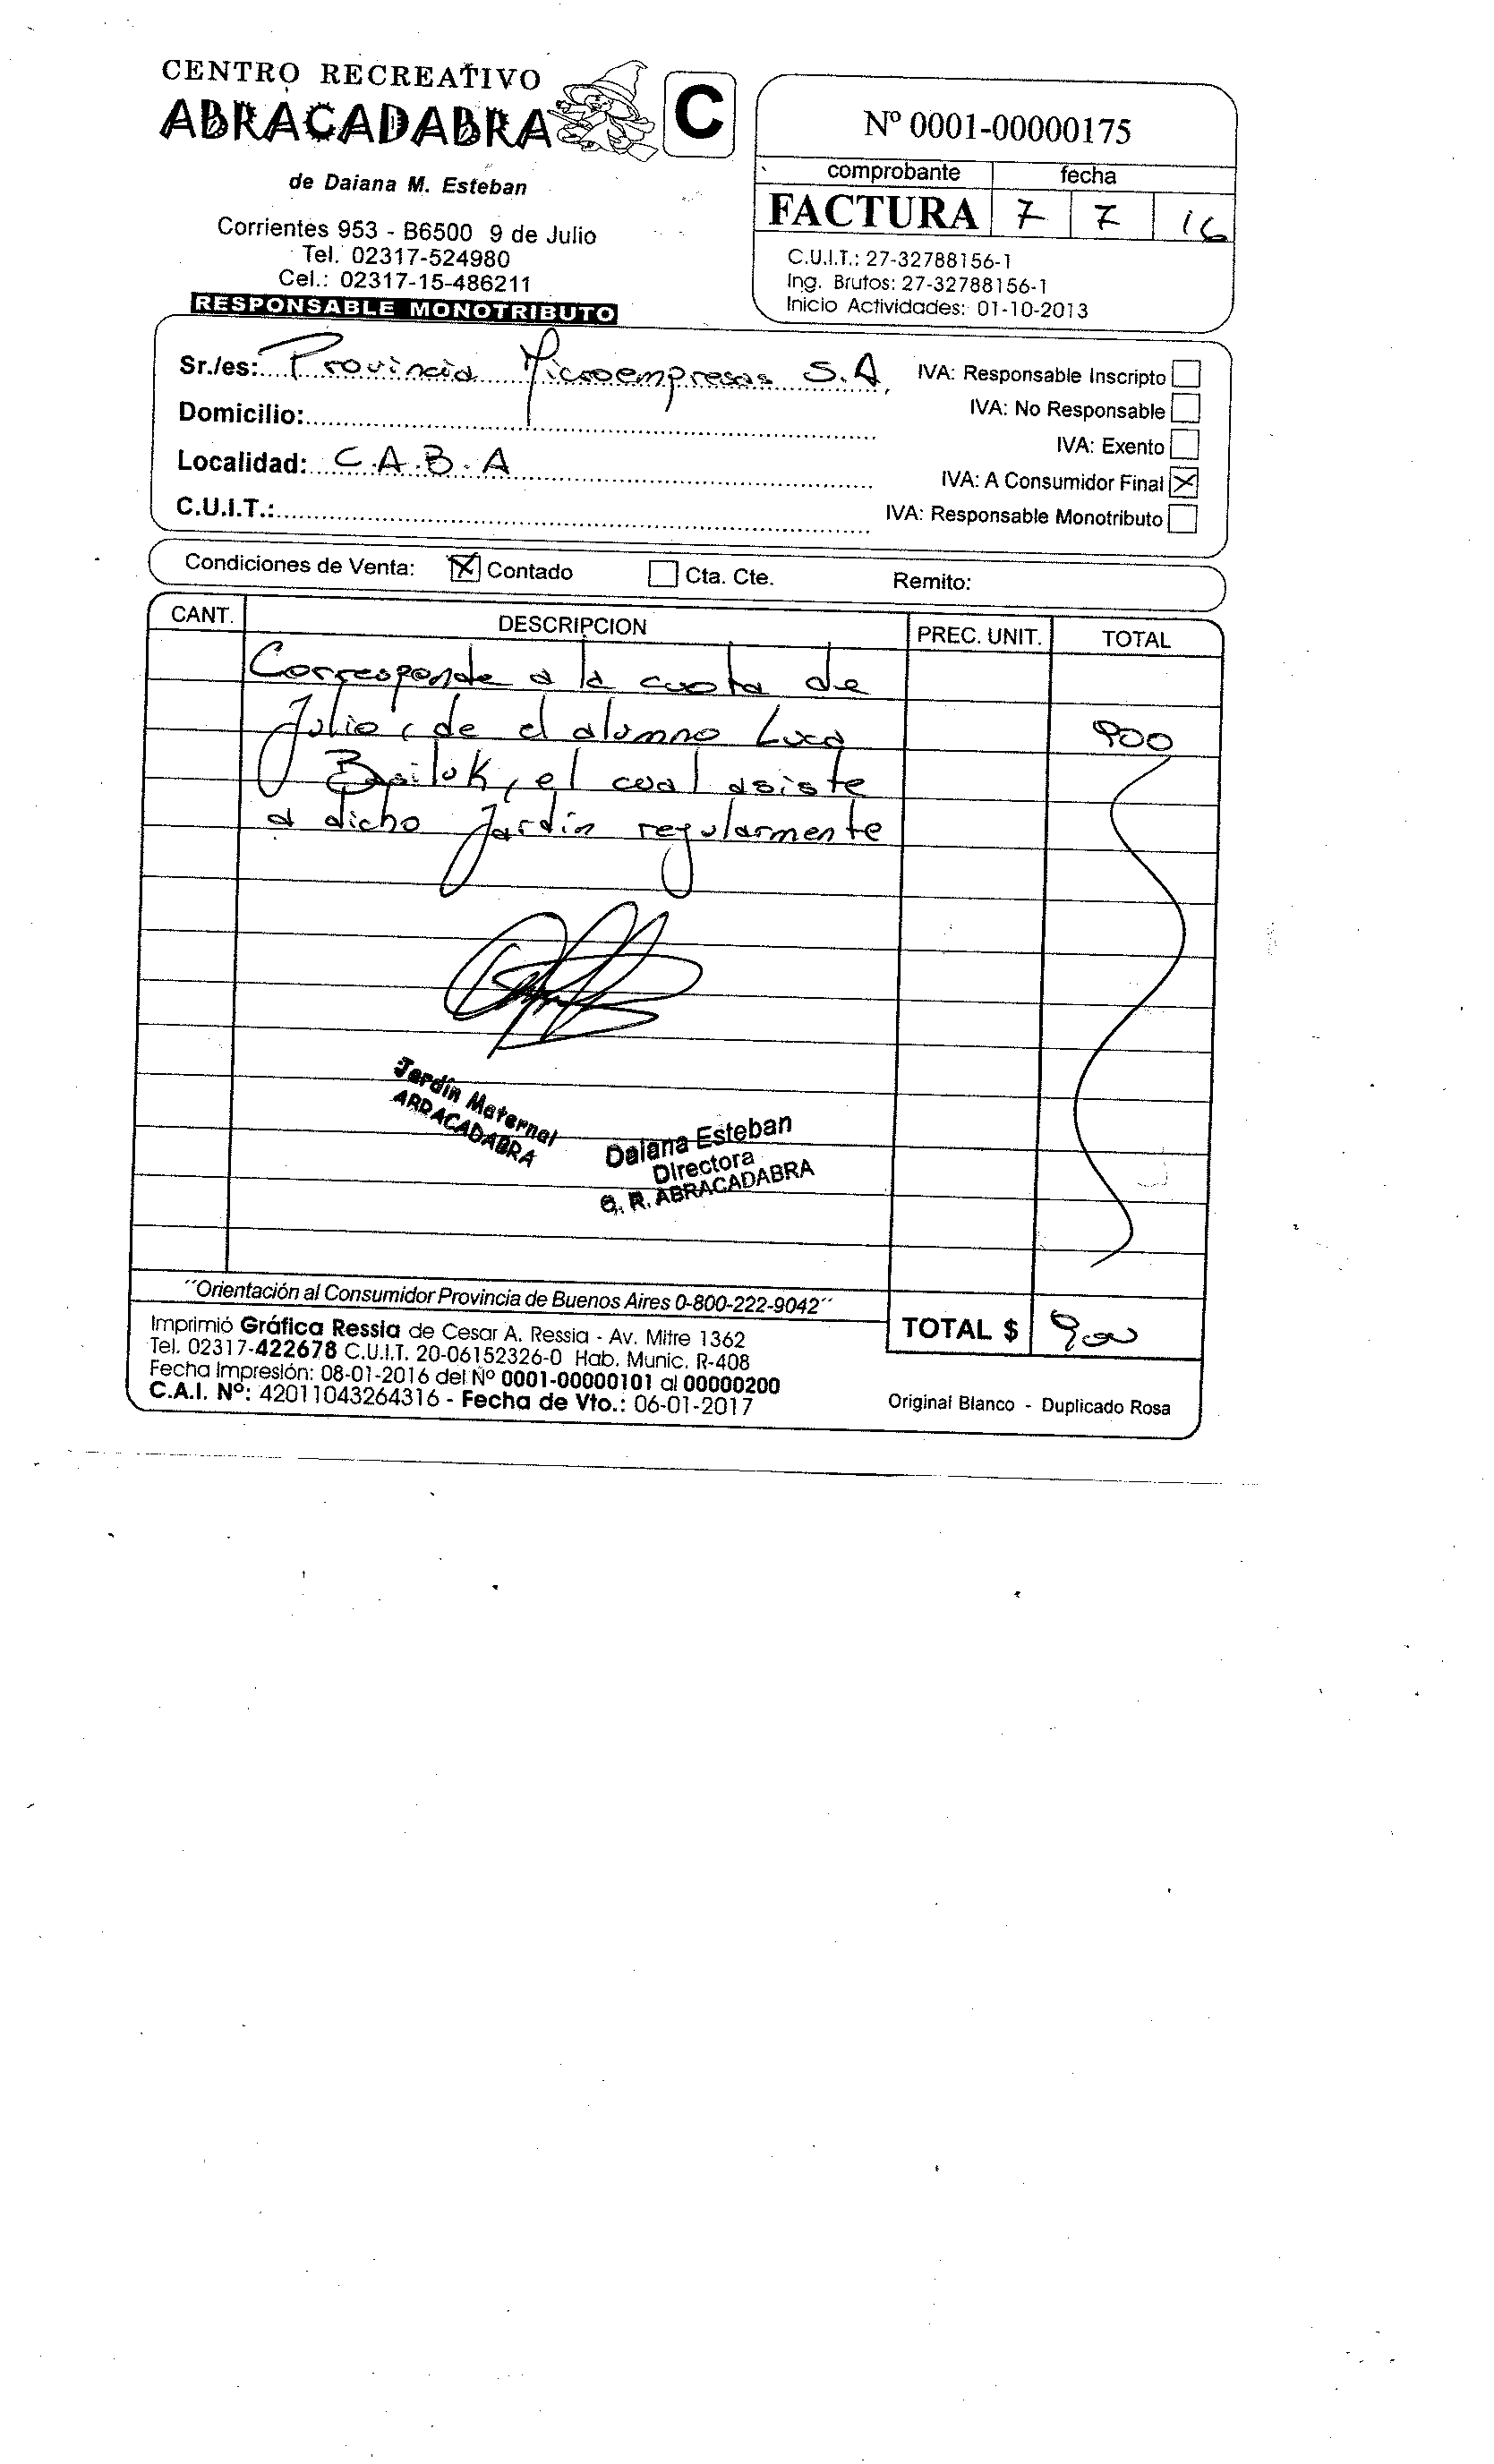 CENTRO RECREATIVO
ABRACADABRA
C
de Daiana M. Esteban
Corrientes 953 - B6500 9 de Julio
Tel. 02317-524980
Cel.: 02317-15-486211
RESPONSABLE MONOTRIBUTO
Nº 0001-00000175
comprobante fecha
FACTURA 7 7 16
C.U.I.T.: 27-32788156-1
Ing. Brutos: 27-32788156-1
Inicio Actividades: 01-10-2013
Sr./es: Provincia Microempresas S.A.
Domicilio:
Localidad: C.A.B.A
C.U.I.T.:
IVA: Responsable Inscripto
IVA: No Responsable
IVA: Exento
IVA: A Consumidor Final X
IVA: Responsable Monotributo
Condiciones de Venta: X Contado Cta. Cte. Remito:
CANT. DESCRIPCION PREC. UNIT. TOTAL
Corresponde a la cuota de
Julio, de el alumno Luca 900
Basiluk, el cual asiste
a dicho Jardín regularmente
Jardín Maternal
ABRACADABRA
Daiana Esteban
Directora
C. R. ABRACADABRA
´´Orientación al Consumidor Provincia de Buenos Aires 0-800-222-9042´´
TOTAL $ 900
Imprimió Gráfica Ressia de Cesar A. Ressia - Av. Mitre 1362
Tel. 02317-422678 C.U.I.T. 20-06152326-0 Hab. Munic. R-408
Fecha Impresión: 08-01-2016 del Nº 0001-00000101 al 00000200
C.A.I. Nº: 42011043264316 - Fecha de Vto.: 06-01-2017
Original Blanco - Duplicado Rosa